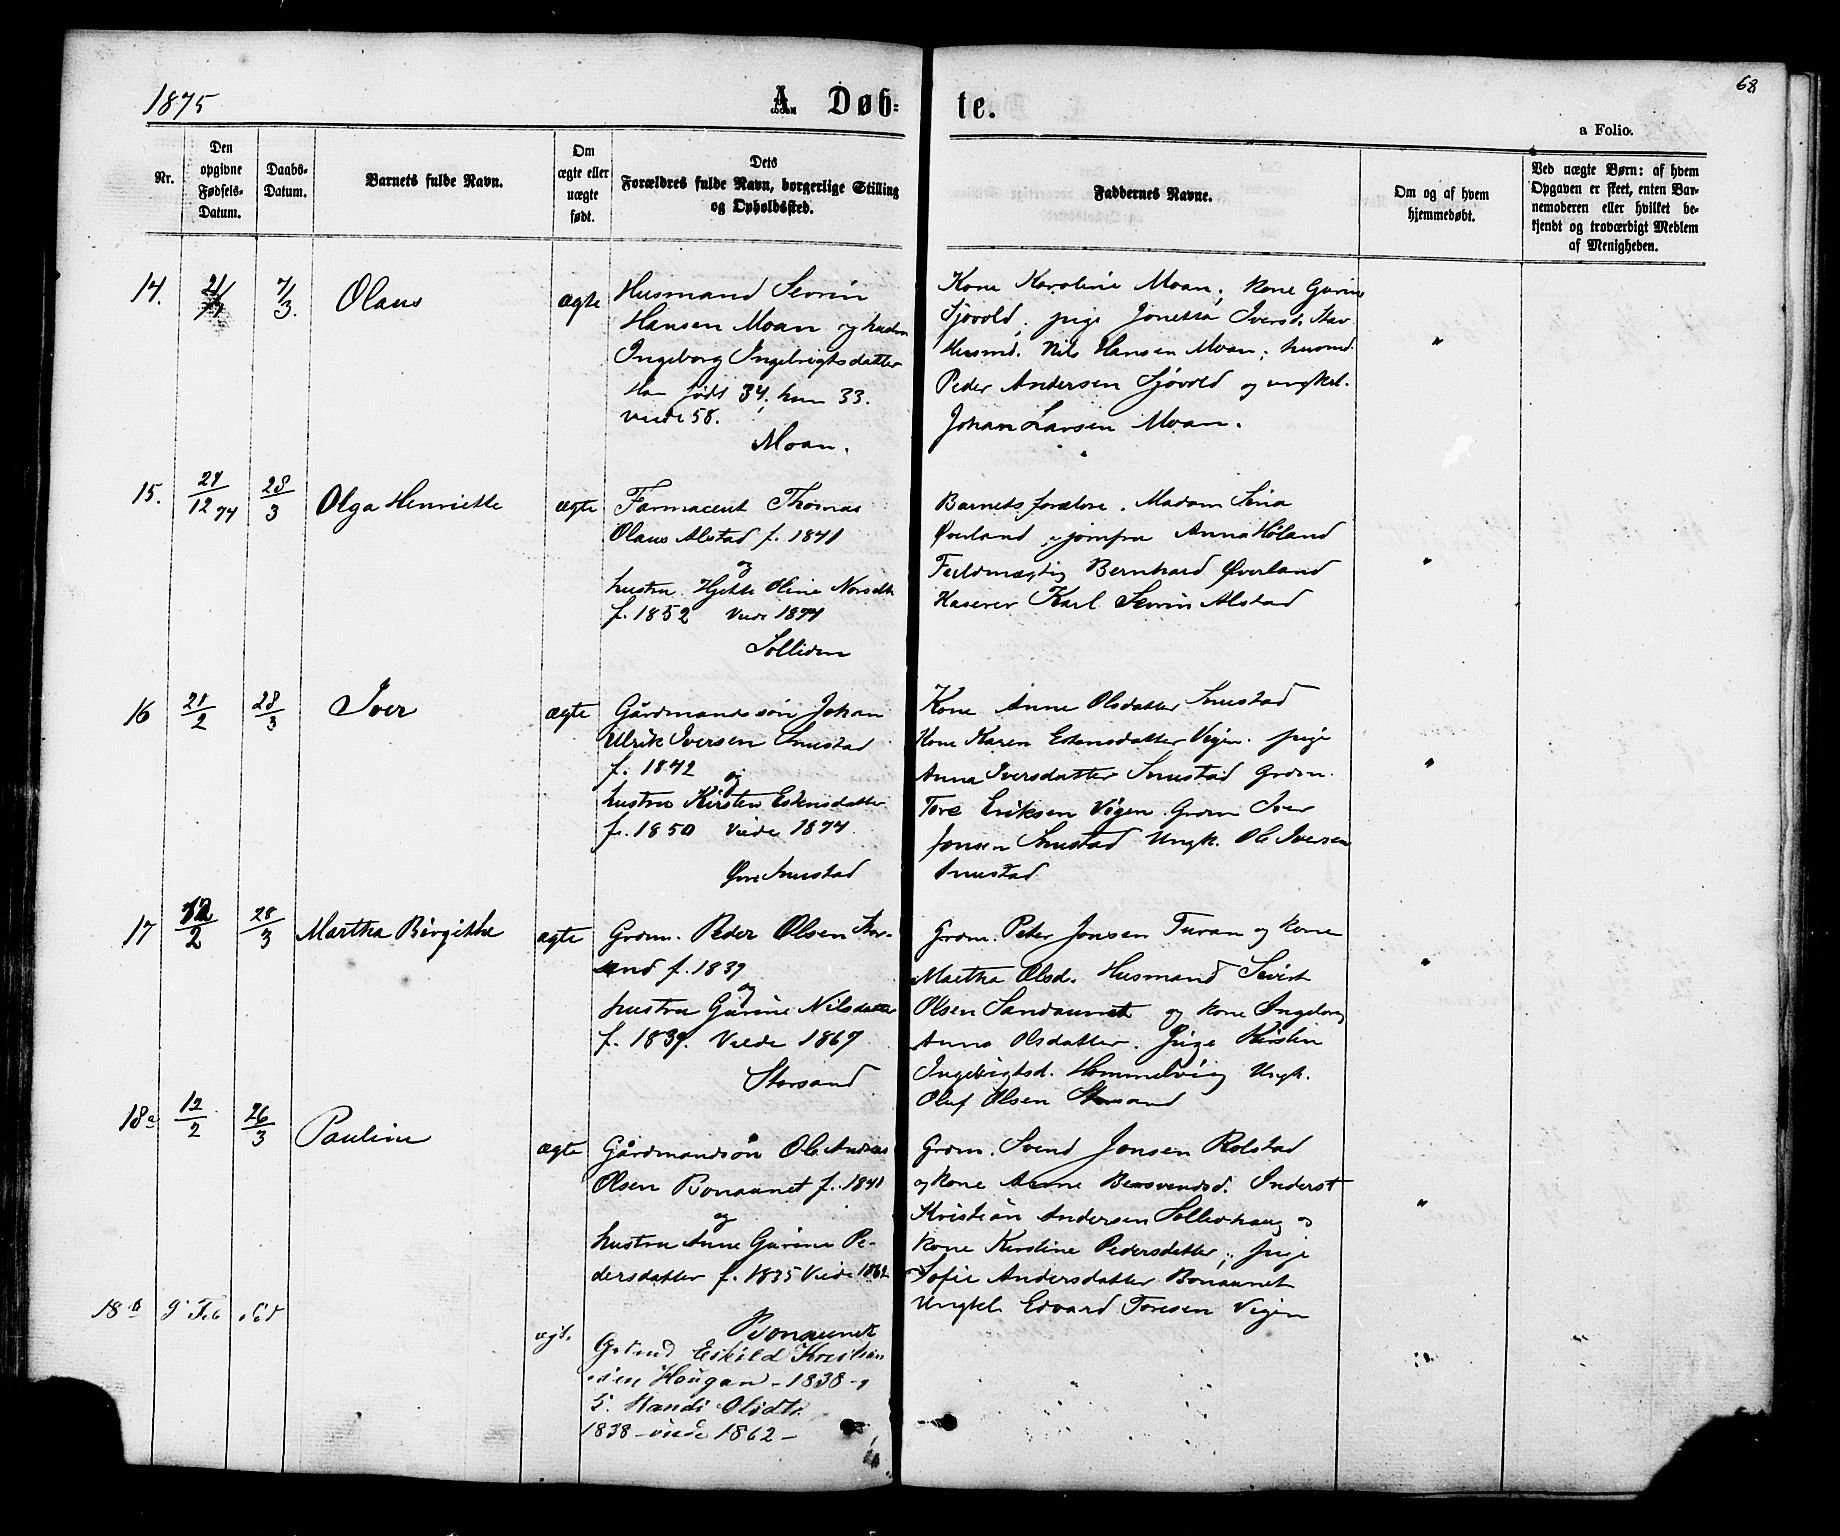 1875
A. Døb-
te.
68
a Folio.
Nr.
Den
opgivne
Fødsels-
Datum.
Daabs-
Datum.
Barnets fulde Navn.
Om
ægte eller
uægte
født.
Dets
Forældres fulde Navn, borgerlige Stilling
og Opholdssted.
Faddernes Navne.
Om og af hvem
hjemmedøbt.
Ved uægte Børn: af hvem
Opgaven er skeet, enten Bar-
nemoderen eller hvilket be-
kjendt og troværdigt Medlem
af Menigheden.
14.
7/3.
Olaus
ægte
Husmand Sevrin
Hansen Moan og hustru
Ingeborg Ingebrigtsdatter
Han født 34, hun 33.
viede 58.
Moan.
Kone Karoline Moan, kone Gurine
Sjøvold, pige Jonetta Iversd. Hav
Husmd. Nils Hansen Moan, husmd.
Peder Andersen Sjøvold og ungkrl.
Johan Larsen Moan.
"
15.
12 74
28/3
Olga Henriette
ægte
Farmaceut Thomas
Olaus Alstad f. 1841
og
hustru Hjette Oline
f. 1852 Viede 1874
Solliden
Barnets forældre. Madam
Øverland, jomfru Anna Høland
Fuldmægtig Bernhard Øverland
Kaserer Karl Sevrin Alstad
"
16
21/2
28/3
Iver
ægte
Gårdmandssøn Johan
Ulrik Iversen Smustad
f. 1842
og
hustru Kirsten Estensdatter
f. 1850 Viede 1874.
Øvre Smustad
Kone Anne Olsdatter Smustad
Kone Karen Estensdatter Vigen. pige
Anna Iversdatter Smustad Grdm.
Tore Eriksen Vigen. Grdm Iver
Jonsen Smustad Ungk. Ole Iversen
Smustad
"
17
12/2
28/3
Martha Birgitte
ægte
Grdm. Peder Olsen Stor-
sand f. 1839
og
hustru Gurine Nilsdatter
f. 1839. Viede 1867
Storsand
Grdm. Peter Jonsen Turan og kone
Martha Olsd. Husmand Sivert
Olsen Sandaunet og kone Ingeborg
Anna Olsdatter. Pige Kirstin
Ingebrigtsd. Hommelvig Ungk.
Oluf Olsen Storsand
"
18a
12/2
26/3
Pauline
ægte
Gårdmandsøn Ole Andreas
Olsen Bonaunet f. 1841
og
hustru Anne Gurine Pe-
dersdatter f. 1835 Viede 1862
Bonaunet
Grdm. Svend Jonsen Rolstad
og kone Anne Bersvendsd. Inderst
Kristian Andersen Solledhaug og
kone Kirstine Pedersdatter, pige
Sofie Andersdatter Bonaunet
Ungkl. Edvard Toresen Vigen
"
18b
9 Feb
ægt.
Grdmd Eskild Kristian
Haugan - 1838 - og
Olsdtr.
1838 - viede 1862 -